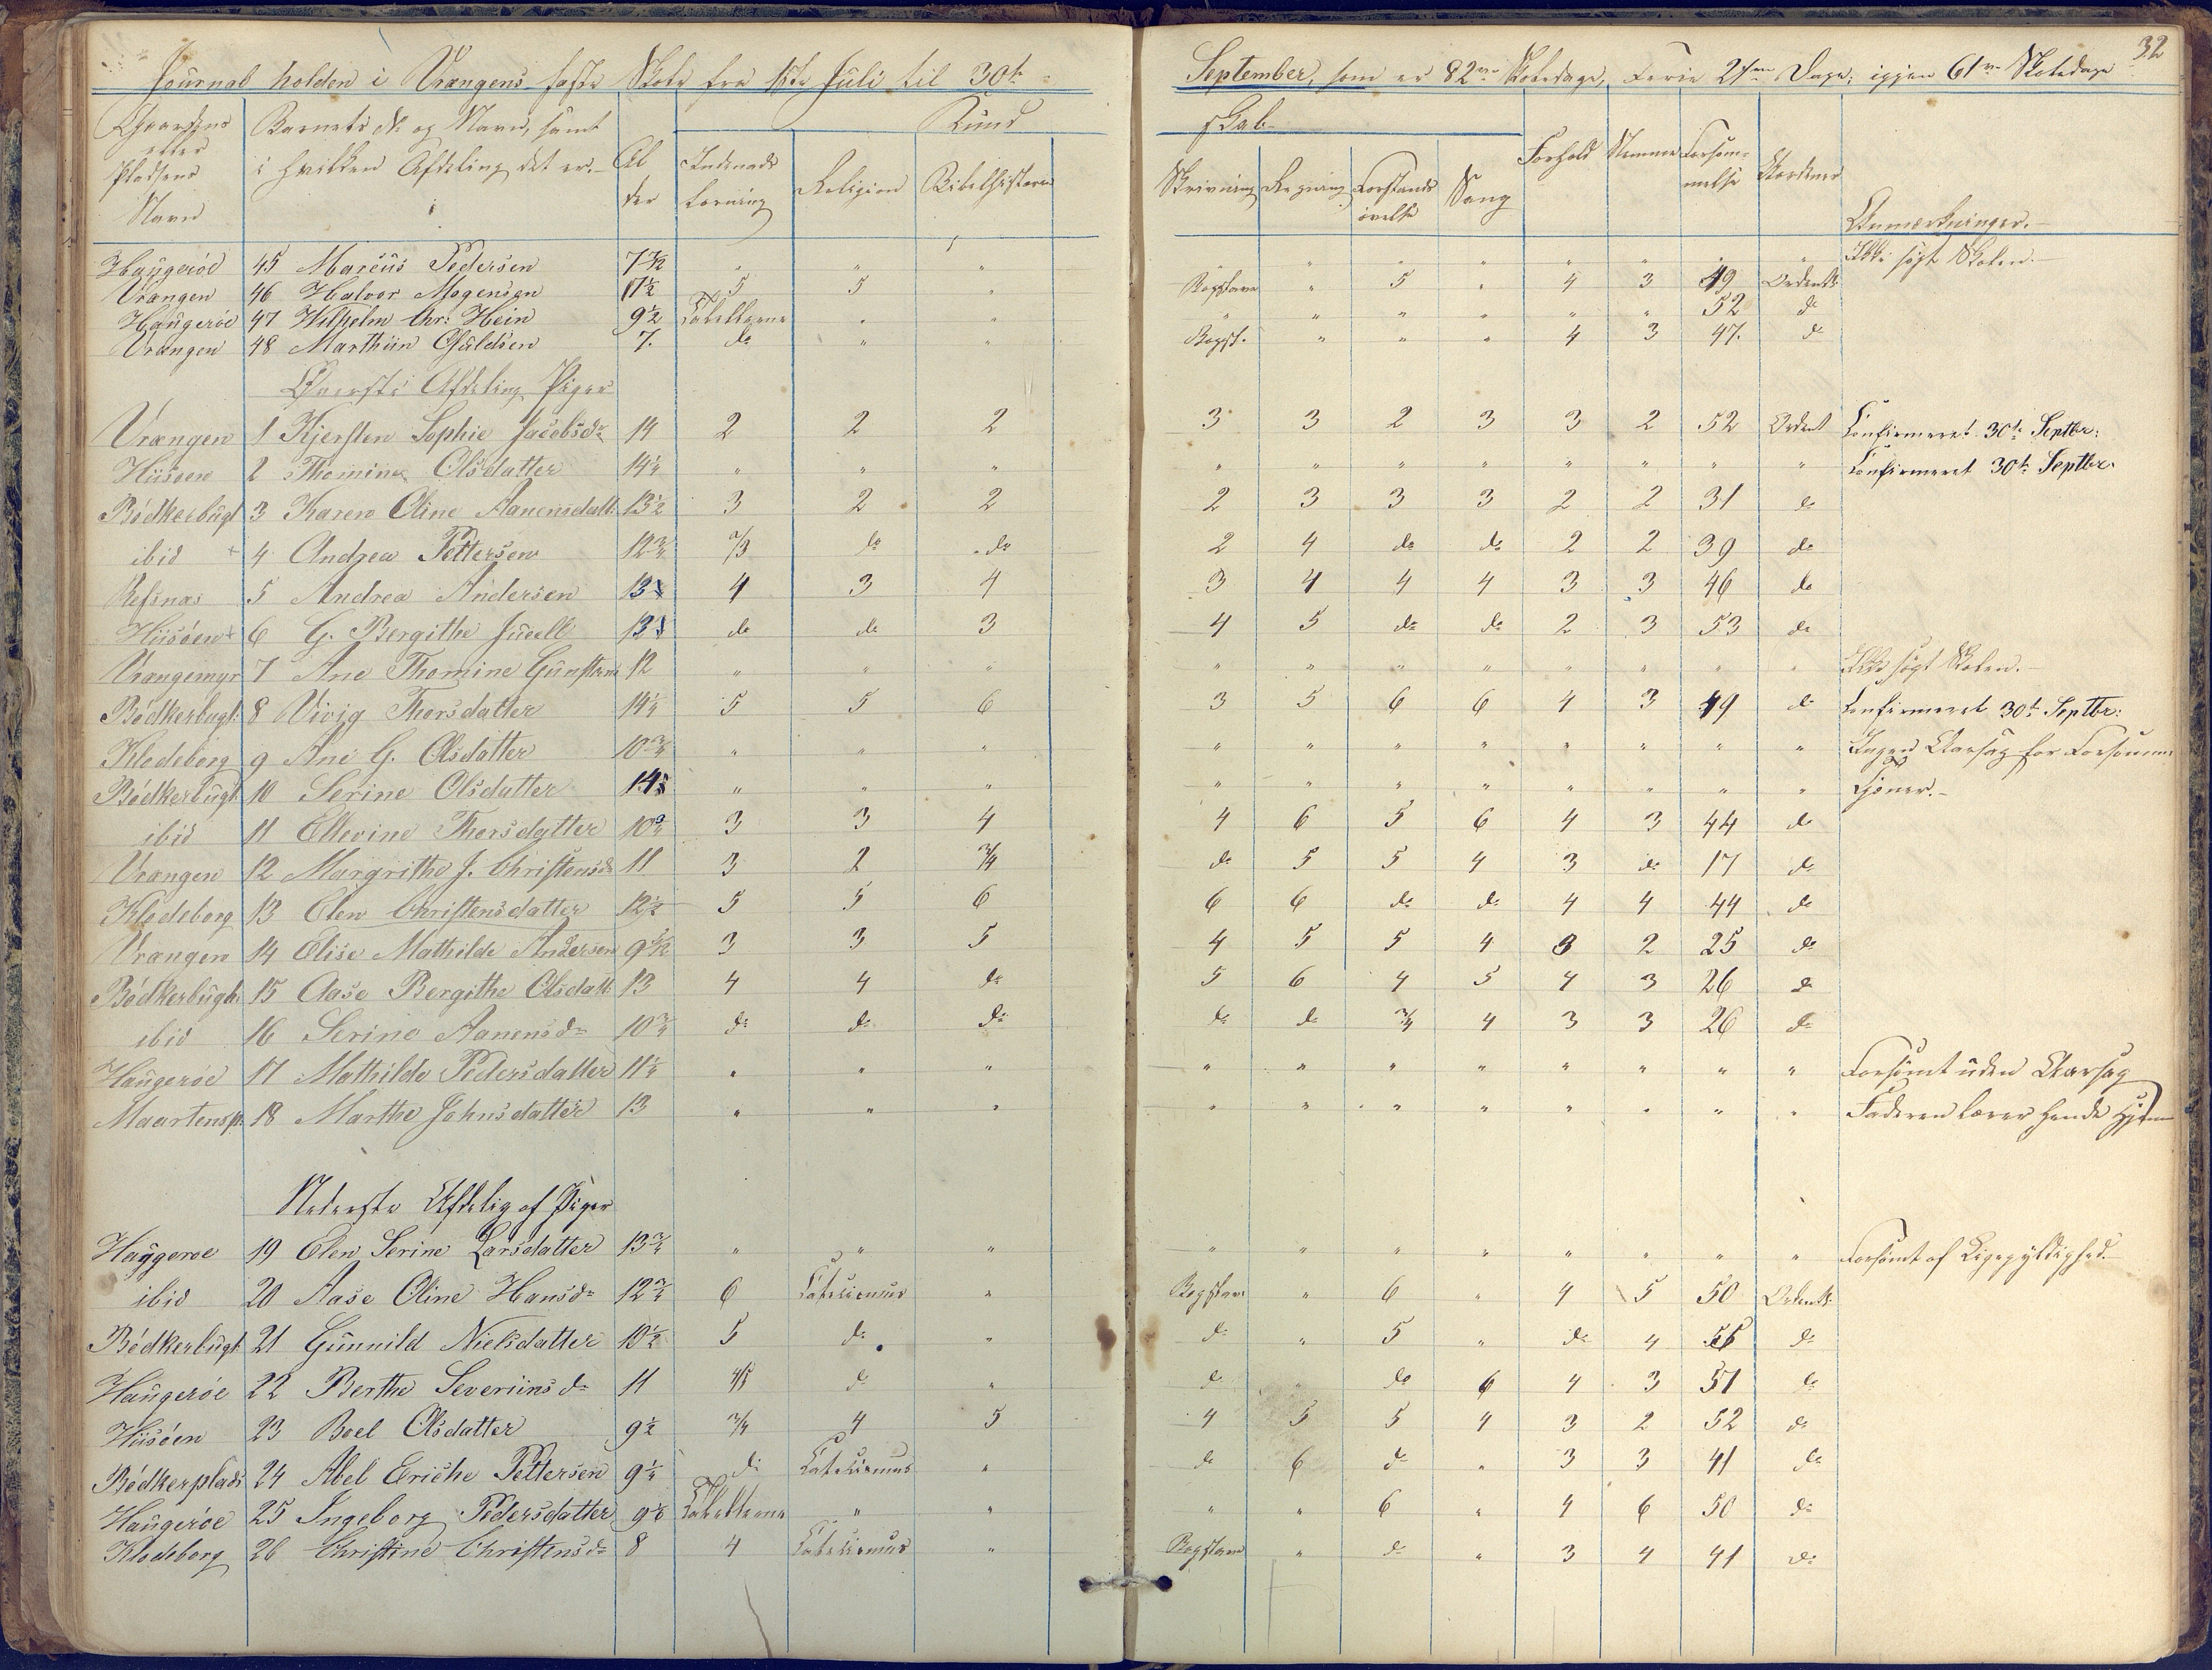 32
Journal holden i Vrangens faste Skole fra 1ste Juli til 30te September, som er 82 Skoledage, Ferie 21 Dage, igjen 61 Skoledage
Gaardens eller Pladsens Navn | Barnets No og Navn, samt i hvilken Afdeling det er. | Alder | Kundskab | Forhold | Nemme | Forsømmelse | Anmærkninger.
Indenadslæsning | Religion | Bibelhistorie | Skrivning | Regning | Forstandsøvelse | Sang
Haugeröe 45 Marcus Pedersen 7 7/12 " " " " " " " " " " " Ikke søgt Skolen.
Vrangen 46 Halvor Mogensen 11½ 5 5 " Bogstave " 5 " 4 3 49 Ordentl.
Haugeröe 47 Wilhelm Chr: Hein 9½ Tabellerne " " " " " " " " 52 do
Vrangen 48 Marthin Guldsen 7. do " " Bogst. " " " 4 3 47. do
Øverste Afdeling Piger
Vrangen 1 Kjersten Sophie Jacobsdr 14 2 2 2 3 3 2 3 3 2 52 Ordent Confirmeret 30te Septbr:
Hüsöen 2 Thomine Olsdatter 14¼ " " " " " " " " " " " Confirmeret 30te Septbr.
Bödkerbugt 3 Karen Oline Aanensdatt: 13½ 3 2 2 2 3 3 3 2 2 31 do
ibid 4 Andrea Pettersen 12¾ 2/3 do do 2 4 do do 2 2 39 do
Refsnæs 5 Andrea Andersen 13 4 3 4 3 4 4 4 3 3 46 do
Hüsöen 6 G. Bergithe Juell 13 do do 3 4 5 do do 2 3 53 do
Vrangemyr 7 Ane Thomine Gunsten 12 " " " " " " " " " " " Ikke søgt Skolen.
Bödkerbugt: 8 Vivig Thorsdatter 14¼ 5 5 6 3 5 6 6 4 3 49 do Confirmeret 30te Septbr:
Klodeborg 9 Ane G. Olsdatter 10¾ " " " " " " " " " " " Ingen Aarsag for Forsømm:
Bödkerbugt 10 Serine Olsdatter 14 " " " " " " " " " " " Tjener.
ibid 11 Ellevine Thorsdatter 10¾ 3 3 4 4 6 5 6 4 3 44 do
Vrangen 12 Margrithe J. Christensdr 11 3 2 3/4 do 5 5 4 3 do 17 do
Klodeborg 13 Elen Christensdatter 12½ 5 5 6 6 6 do do 4 4 44 do
Vrangen 14 Elise Mathilde Andersen 9 3 3 5 4 5 5 4 3 2 25 do
Bödkerbugt: 15 Aase Bergithe Olsdatt: 13 4 4 do 5 6 4 5 4 3 26 do
ibid 16 Serine Aanensdr 10¾ do do do do do 3/4 4 3 3 26 do
Haugeröe 17 Mathilde Pedersdatter 11¼ " " " " " " " " " " " Forsömt uden Aarsag
Maartensp. 18 Marthe Johnsdatter 13 " " " " " " " " " " " Faderen lærer hende hjemme
Nederste Afdelig af Piger
Haggeroe 19 Elen Serine Larsdatter 13¾ " " " " " " " " " " " Forsömt af Ligegyldighed.
ibid 20 Aase Oline Hansdr 12¾ 6 Catecismus " Bogstave " 6 " 4 5 50 Ordentl.
Bödkerbugt 21 Gunnild Nielsdatter 10½ 5 do " do " 5 " do 4 56 do
Haugeröe 22 Berthe Severiinsdr 11 4/5 do " do " do 6 4 3 51 do
Hüsöen 23 Boel Olsdatter 9½ 3/4 4 5 4 5 5 4 3 2 52 do
Bödkerplads 24 Abel Eriche Pettersen 9¼ do Catecismus " do 6 do " 3 3 41 do
Haugeröe 25 Ingeborg Pedersdatter 9 Tabellerne " " " " 6 " 4 6 50 do
Klodeborg 26 Christine Christensdr 8 4 Catecismus " Bogstave " do " 3 4 41 do